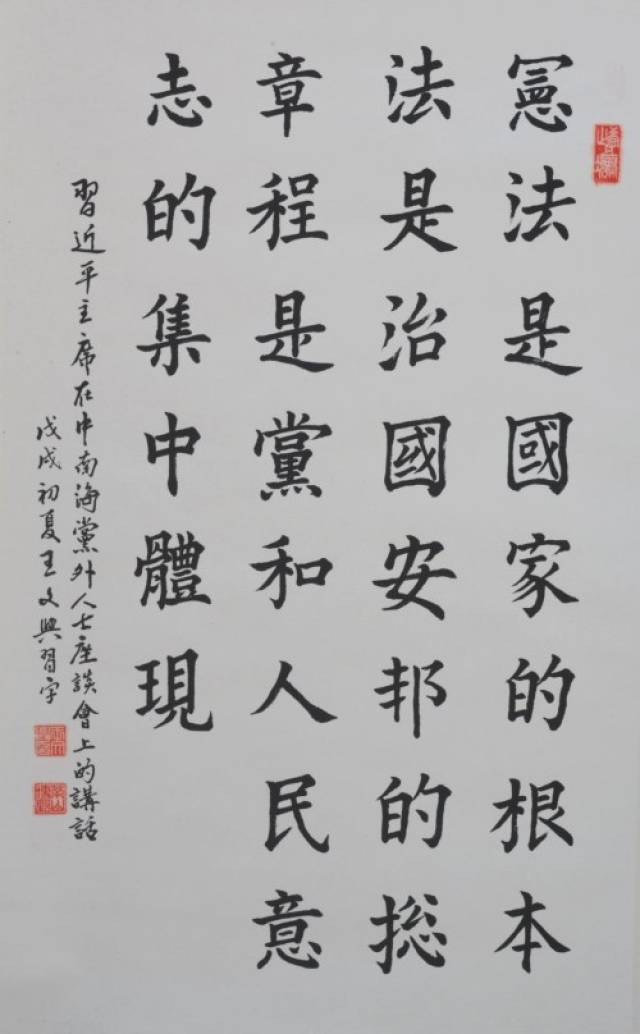 憲法是國家的根本
法是治國安邦的総
章程是黨和人民意
志的集中體現
習近平主席在中南海黨外人士座談會上的講話
戊戌初夏王文興習字